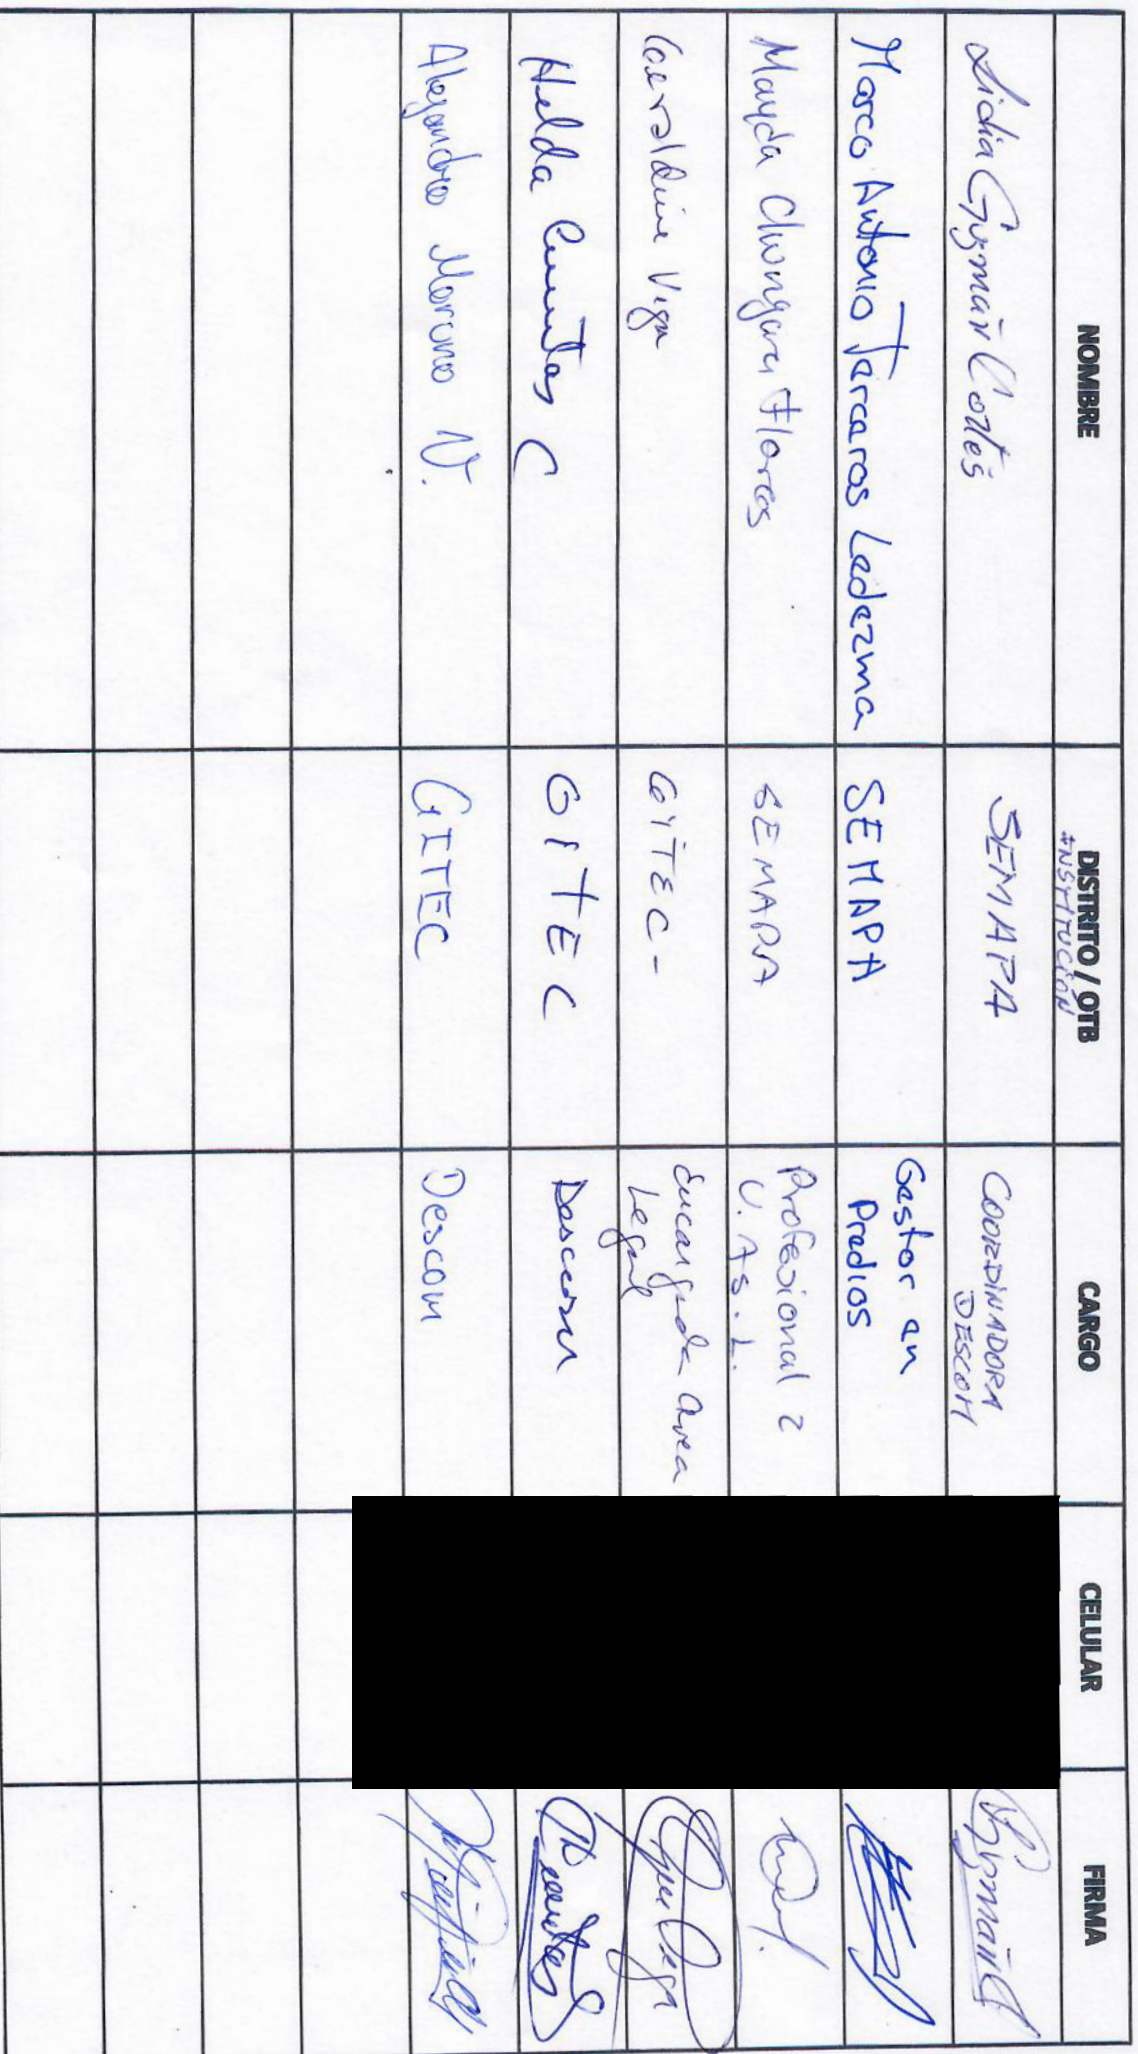 NOMBRE DISTRITO / OTB CARGO CELULAR FIRMA
INSTITUCIÓN
Lidia Guzmán Cortés SEMAPA COORDINADORA
DESCOM
Marco Antonio Tarcaros Ledezma SEMAPA Gestor en
Predios
Mayda Chungara Flores SEMAPA Profesional 2
U. As. L.
Geraldine Vega GITEC- Encargada area
Legal
Helda Cuentas C GITEC Descom
Alejandro Moreno V. GITEC Descom